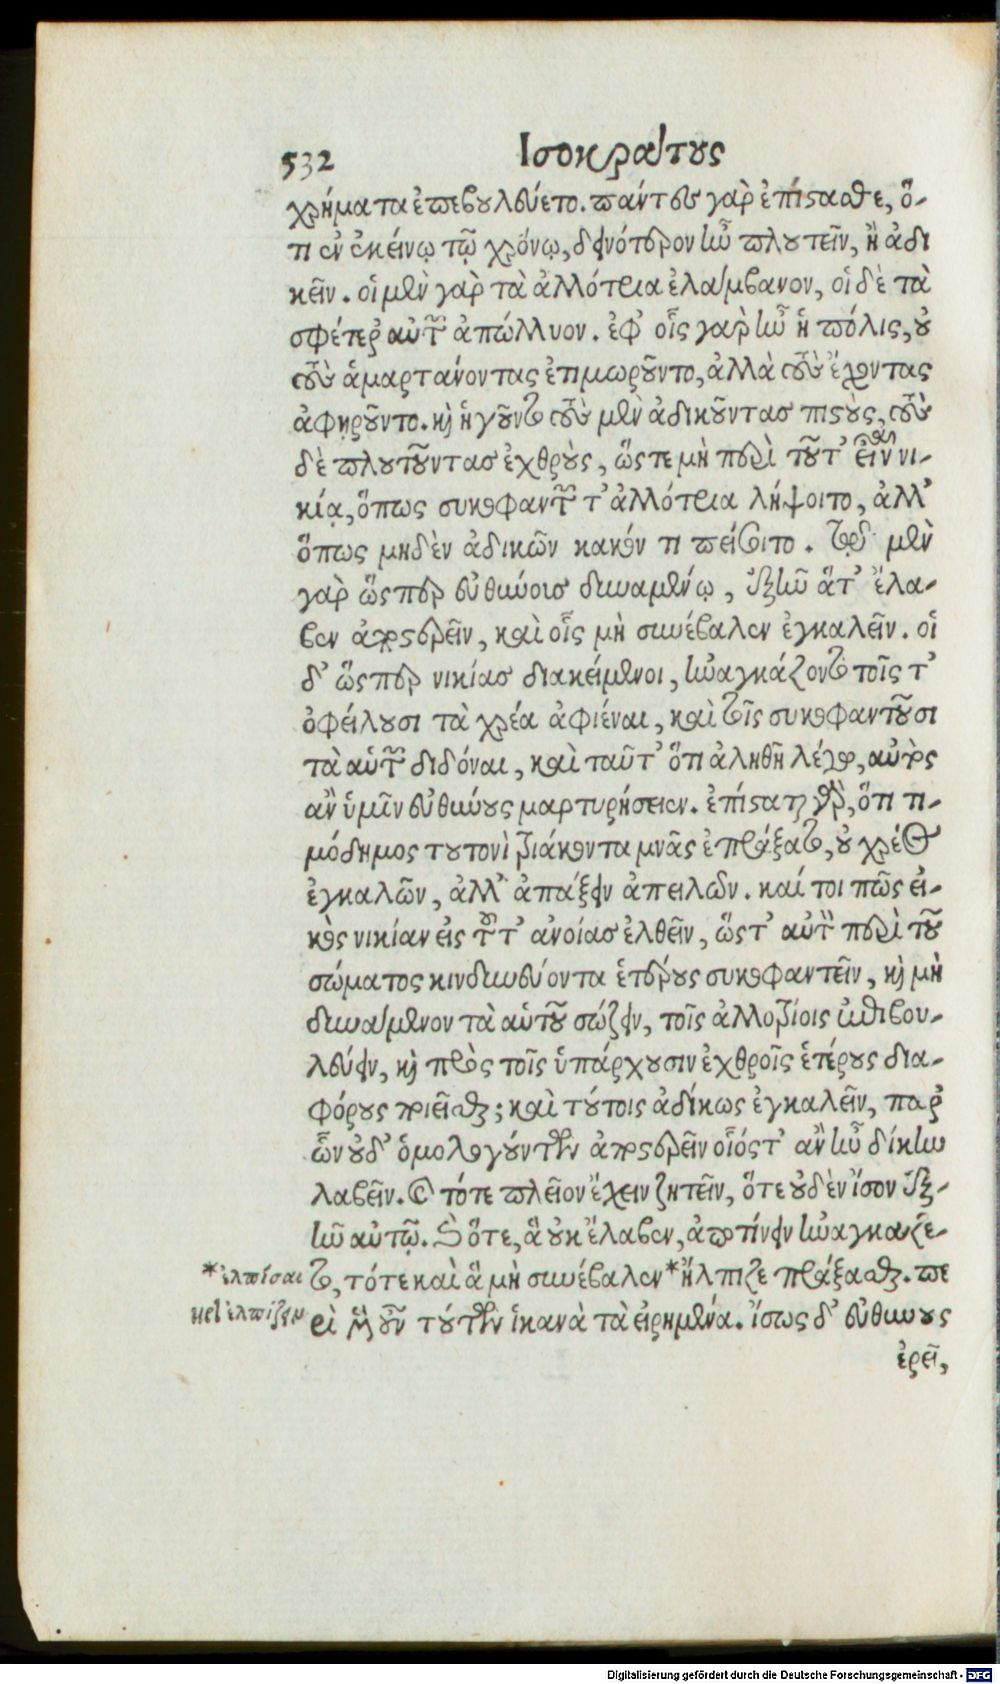 532 Ισοκράτους
χρήματα ἐπεβουλεύετο. πάντες γὰρ ἐπίστασθε, ὅ-
τι ἐν ἐκείνῳ τῷ χρόνῳ, δεινότερον ἦν πλουτεῖν, ἢ ἀδι
κεῖν. οἱ μὲν γὰρ τὰ ἀλλότρια ἐλάμβανον, οἱ δὲ τὰ
σφέτερα αὐτῶν ἀπώλλυον. ἐφ' οἷς γὰρ ἦν ἡ πόλις, οὐ
τοὺς ἁμαρτάνοντας ἐτιμωροῦντο, ἀλλὰ τοὺς ἔχοντας
ἀφῃροῦντο. καὶ ἡγοῦντο τοὺς μὲν ἀδικοῦντας πιστοὺς, τοὺς
δὲ πλουτοῦντας ἐχθροὺς, ὥστε μὴ περὶ τοῦτ' εἶναι νι-
κίᾳ, ὅπως συκοφαντῶν τ' ἀλλότρια λήψοιτο, ἀλλ'
ὅπως μηδὲν ἀδικῶν κακόν τι πείσοιτο. τῷ μὲν
γὰρ ὥσπερ εὐθύνοις δυναμένῳ, ἐξῆν ἅτ' ἔλα-
βεν ἀποστερεῖν, καὶ οἷς μὴ συνέβαλεν ἐγκαλεῖν. οἱ
δ' ὥσπερ νικίας διακείμενοι, ἠναγκάζοντο τοῖς τ'
ὀφείλουσι τὰ χρέα ἀφιέναι, καὶ τοῖς συκοφαντοῦσι
τὰ αὑτῶν διδόναι, καὶ ταῦτ' ὅτι ἀληθῆ λέγω, αὐτὸς
ἂν ὑμῖν εὐθύνους μαρτυρήσειεν. ἐπίσταται γὰρ, ὅτι τι-
μόδημος τουτονὶ τριάκοντα μνᾶς ἐπράξατο, οὐ χρέος
ἐγκαλῶν, ἀλλ' ἀπάξειν ἀπειλῶν. καί τοι πῶς εἰ-
κὸς νικίαν εἰς τοῦτ' ἀνοίας ἐλθεῖν, ὥστ' αὐτὸν περὶ τοῦ
σώματος κινδυνεύοντα ἑτέρους συκοφαντεῖν, καὶ μὴ
δυνάμενον τὰ αὑτοῦ σώζειν, τοῖς ἀλλοτρίοις ἐπιβου-
λεύειν, καὶ πρὸς τοῖς ὑπάρχουσιν ἐχθροῖς ἑτέρους δια-
φόρους ποιεῖσθαι; καὶ τούτοις ἀδίκως ἐγκαλεῖν, παρ'
ὧν οὐδ' ὁμολογούντων ἀποστερεῖν οἷός τ' ἂν ἦν δίκην
λαβεῖν. καὶ τότε πλεῖον ἔχειν ζητεῖν, ὅτε οὐδὲν ἴσον ἐξ-
ῆν αὐτῷ. καὶ ὅτε, ἃ οὐκ ἔλαβεν, ἀποτίνειν ἠναγκάζε-
το, τότε καὶ ἃ μὴ συνέβαλεν *ἤλπιζε πράξασθαι. πε
ρὶ μὲν οὖν τούτων ἱκανὰ τὰ εἰρημένα. ἴσως δ' εὐθύνους
ἐρεῖ,
*ἐλπίσαι
καὶ ἐλπίζειν
Digitalisierung gefördert durch die Deutsche Forschungsgemeinschaft - DFG